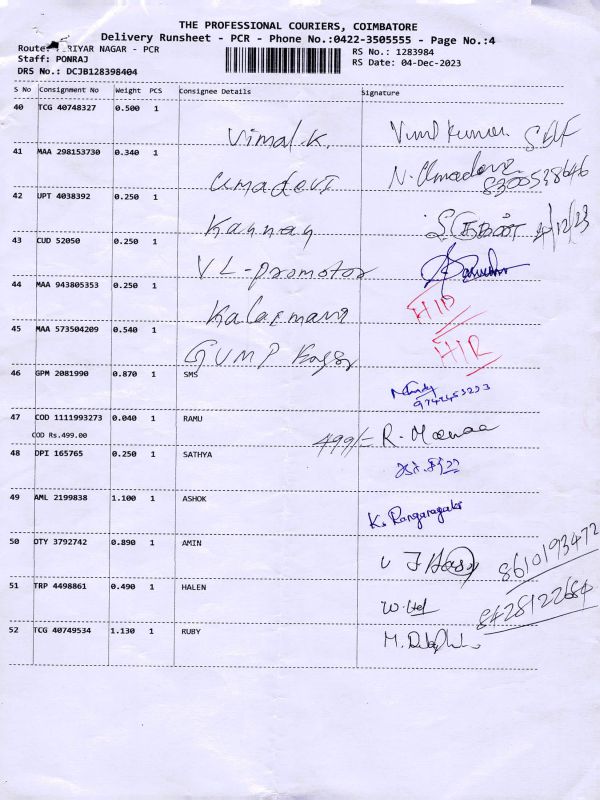 THE PROFESSIONAL COURIERS, COIMBATORE
Delivery Runsheet - PCR - Phone No.:0422-3505555 - Page No.:4
Route: RIYAR NAGAR - PCR
RS No.: 1283984
Staff: PONRAJ
RS Date: 04-Dec-2023
DRS No.: DCJB128398404
S No Consignment No Weight PCS Consignee Details Signature
40 TCG 40748327 0.500 1
Vimal.K. Vimal Kumar SELF
41 MAA 298153730 0.340 1
Umadevi N. Umadevi
8300538646
42 UPT 4038392 0.250 1
Kannan 4/12/23
43 CUD 52050 0.250 1
VL-promotor
44 MAA 943805353 0.250 1
Kalaimani HID
45 MAA 573504209 0.540 1
GUMP HIR
46 GPM 2081990 0.870 1 SMS
47 COD 1111993273 0.040 1 RAMU
COD Rs.499.00 499/= R. Meenaa
48 DPI 165765 0.250 1 SATHYA
49 AML 2199838 1.100 1 ASHOK
K. Rangaragaks
50 DTY 3792742 0.890 1 AMIN
8610193472
51 TRP 4498861 0.490 1 HALEN
8428122684
52 TCG 40749534 1.130 1 RUBY